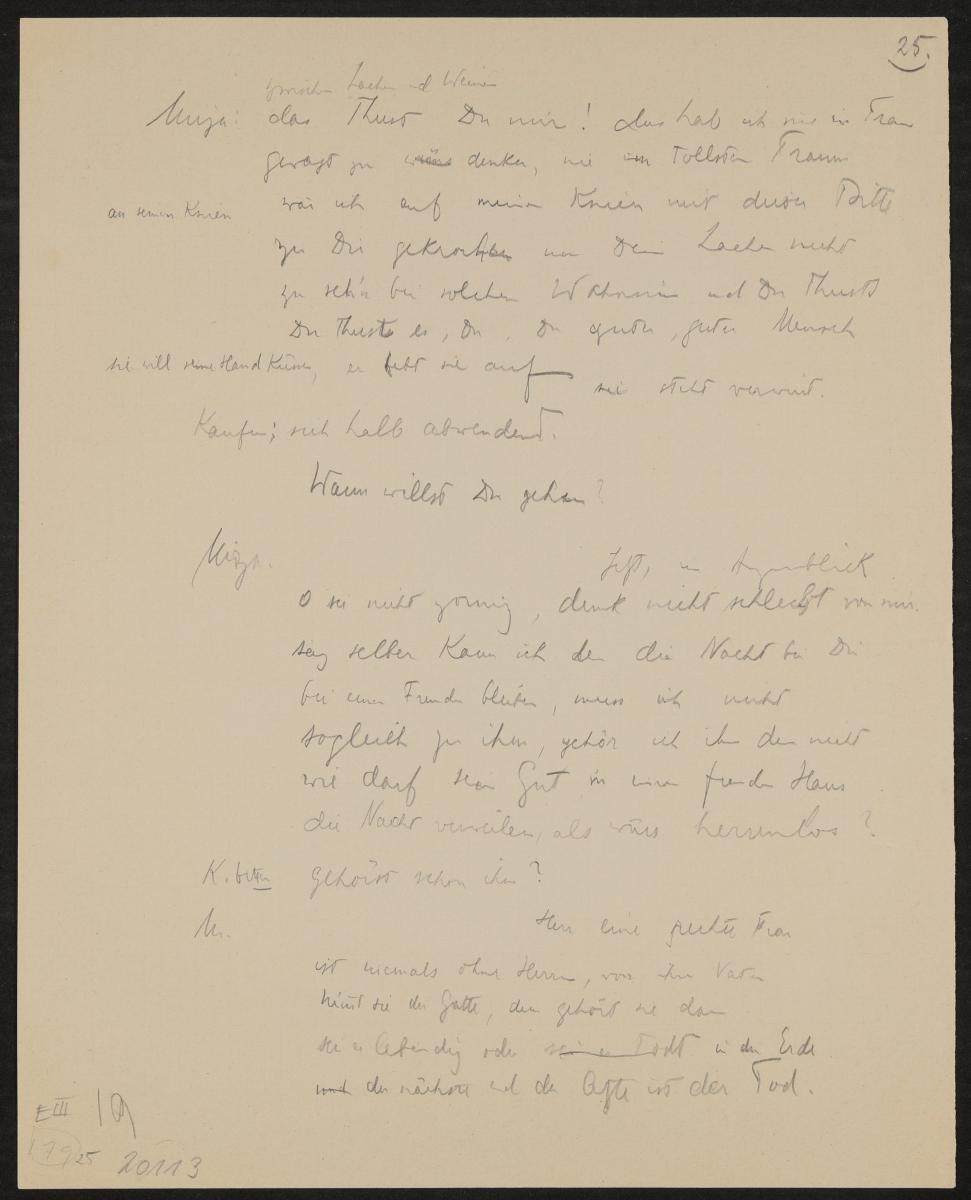 25.
zwischen Lachen und Weinen
Mirza: das Thust Du mir! das hab ich nie im Traum
gewagt zu denken, nie im tollsten Traum
an seinen Knien wär ich auf meinen Knien mit dieser Bitte
zu Dir gekrochen um Dein Lachen nicht
zu sehn bei solchem Wahnsinn und Du Thusts
Du Thust es, Du, Du guter, guter Mensch
sie will seine Hand küssen, er hebt sie auf sie steht verwirrt.
Kaufm; sich halb abwendend.
Wann willst Du gehen?
Mirza. Jetzt, im Augenblick
O sei nicht zornig, denk nicht schlecht von mir.
sag selber kann ich denn die Nacht bei Dir
bei einem Fremden bleiben, muss ich nicht
sogleich zu ihm, gehör ich ihm denn nicht
wie darf sein Gut in einem fremden Haus
die Nacht verweilen, als wärs herrenlos?
K. bitter gehörst schon ihm?
M. Herr eine rechte Frau
ist niemals ohne Herrn, von ihrem Vater
nimmt sie der Gatte, dem gehört sie dann
sei er lebendig oder in der Erde
der nächste und der letzte ist der Tod.
E III 19
179 25 20113